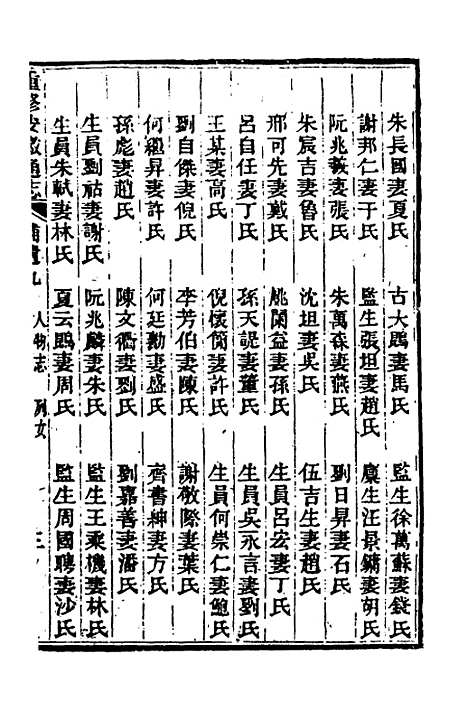 朱長國妻夏氏 古大鵾妻馬氏 監生徐萬蘇妻錢氏
謝邦仁妻于氏 監生張坦妻趙氏 廩生汪景鏞妻胡氏
阮兆蓛妻張氏 朱萬森妻燕氏 劉日昇妻石氏
朱宸吉妻魯氏 沈坦妻吳氏 伍吉生妻趙氏
邢可先妻戴氏 姚閑益妻孫氏 生員呂安妻丁氏
呂自任妻丁氏 孫天諟妻董氏 生員吳永言妻劉氏
王某妻高氏 倪懷簡妻許氏 生員何崇仁妻鮑氏
劉自傑妻倪氏 李芳伯妻陳氏 謝敬際妻葉氏
何繼昇妻許氏 何廷勳妻盛氏 齊書紳妻方氏
孫彪妻趙氏 陳文衢妻劉氏 劉嘉善妻潘氏
生員劉祜妻謝氏 阮兆麟妻朱氏 監生王秉機妻林氏
生員朱軾妻林氏 夏云鵾妻周氏 監生周國聘妻沙氏
重修安徽通志 補遺九 人物志 列女 三